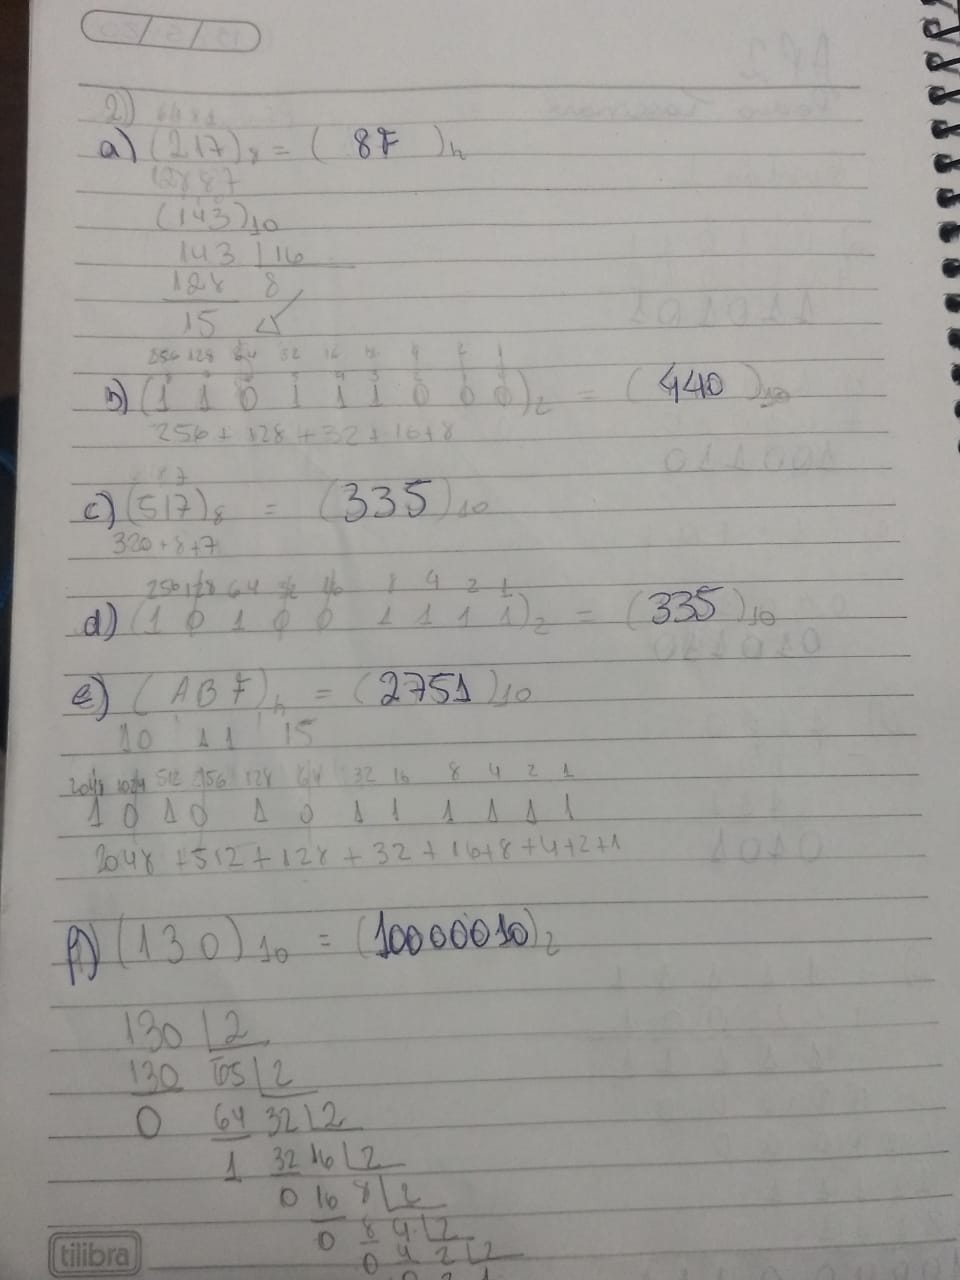 2)
64 8 1
a) (217)8 = ( 8F )h
128 8 7
(143)10
143 |16
128 8
15
256 128 64 32 16 8 4 2 1
b) (1 1 0 1 1 1 0 0 0)2 = (440)10
256 + 128 + 32 + 16 + 8
8 7
c) (517)8 = (335)10
320 + 8 + 7
256 128 64 32 16 8 4 2 1
d) (1 0 1 0 0 1 1 1 1)2 = (335)10
e) (ABF)h = (2751)10
10 11 15
2048 1024 512 256 128 64 32 16 8 4 2 1
1 0 1 0 1 0 1 1 1 1 1 1
2048 + 512 + 128 + 32 + 16 + 8 + 4 + 2 + 1
f) (130)10 = (10000010)2
130 |2
130 65 |2
0 64 32 |2
1 32 16 |2
0 16 8 |2
0 8 4 |2
0 4 2 |2
0 2 1
tilibra